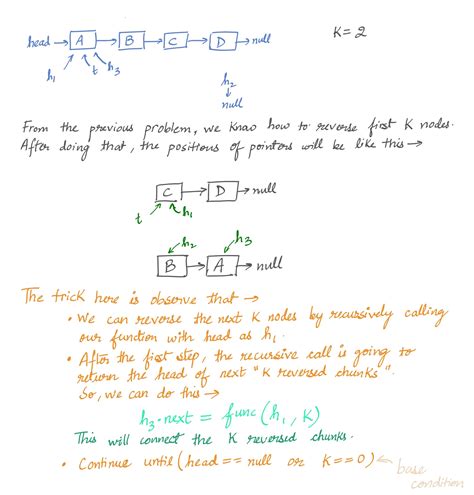 head → A → B → C → D → null K = 2
h₁ t h₃ h₂
null
From the previous problem, we know how to reverse first K nodes.
After doing that, the positions of pointers will be like this →
C → D → null
t h₁
h₂ h₃
B → A → null
The trick here is observe that →
• We can reverse the next K nodes by recursively calling
our function with head as h₁.
• After the first step, the recursive call is going to
return the head of next "K reversed chunks".
So, we can do this →
h₃.next = func(h₁, K)
This will connect the K reversed chunks.
• Continue until (head == null or K==0) ← base
condition